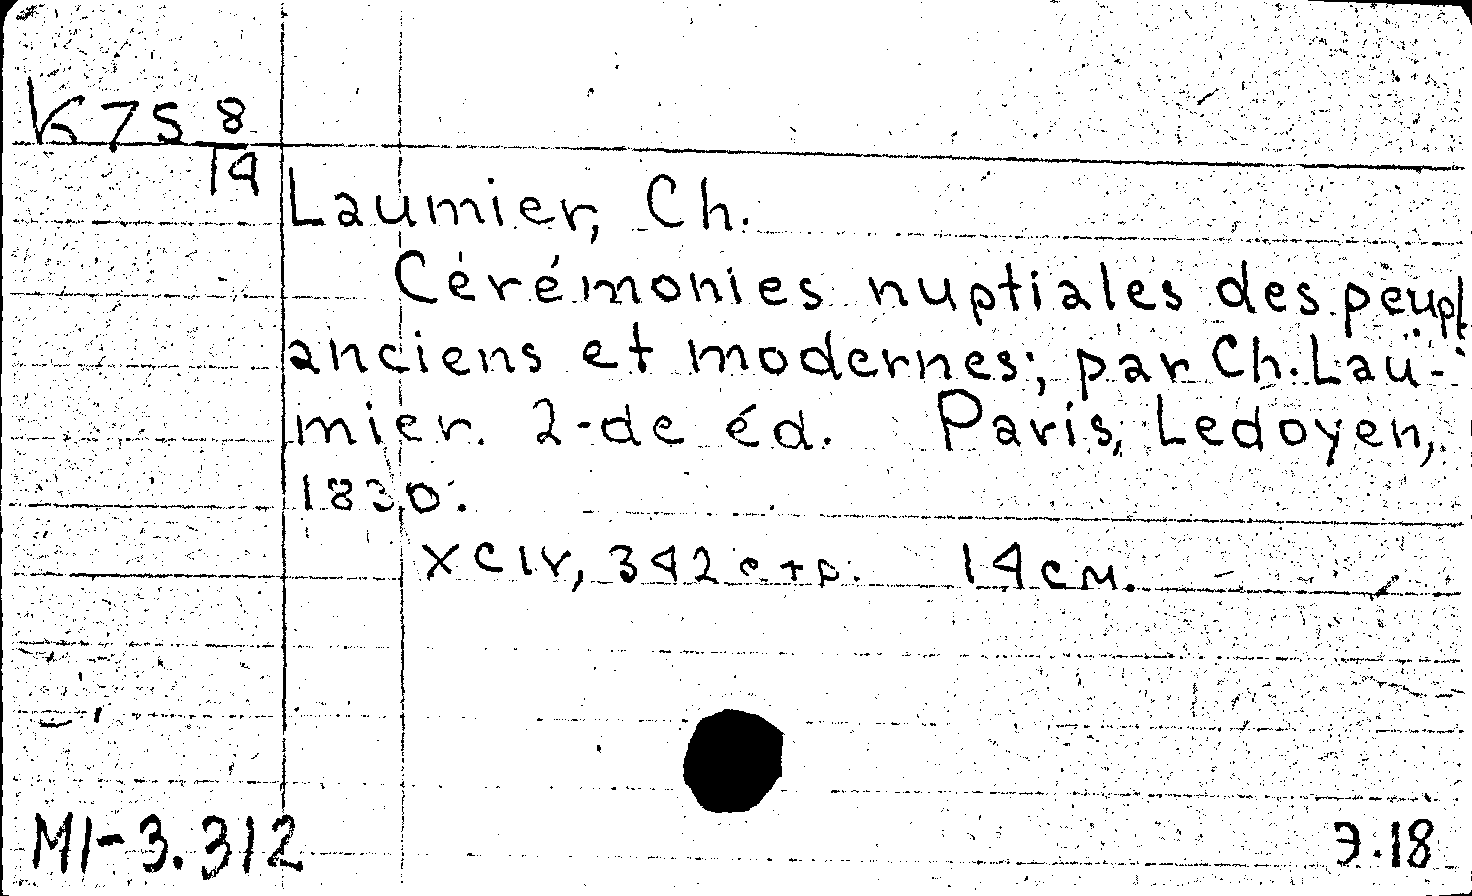 K75 8/14
Laumier, Ch.
Cérémonies nuptiales des peupl
anciens et modernes; par Ch. Lau-
mier. 2-de éd. Paris, Ledoyen,
1830.
XCIV, 342 стр. 14 см.
МI-3.312 Э.18